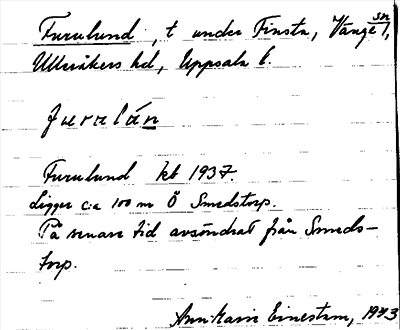 Furulund, t under Finsta, Vänge sn,
Ulleråkers hd, Uppsala l.
furalán
Furulund kb 1937.
Ligger c:a 100 m Ö Smedstorp.
På senare tid avsöndrat från Smeds-
torp.
Ann Karin Einestam, 1973